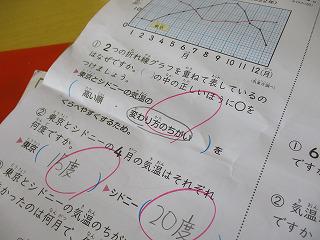 東京
1 2 3 4 5 6 7 8 9 10 11 12(月)
① 2つの折れ線グラフを重ねて表しているの
はなぜですか。( )の中の正しいほうに○を
つけましょう。
▶東京とシドニーの気温の
高い順 ・ 変わり方のちがい を
くらべやすくするため。
② 東京とシドニーの4月の気温はそれぞれ
何度ですか。
▶東京( 度)
▶シドニー(20度)
東京とシドニーの気温のちが
かったのは何月で
① 6
です
② 気温
ですか